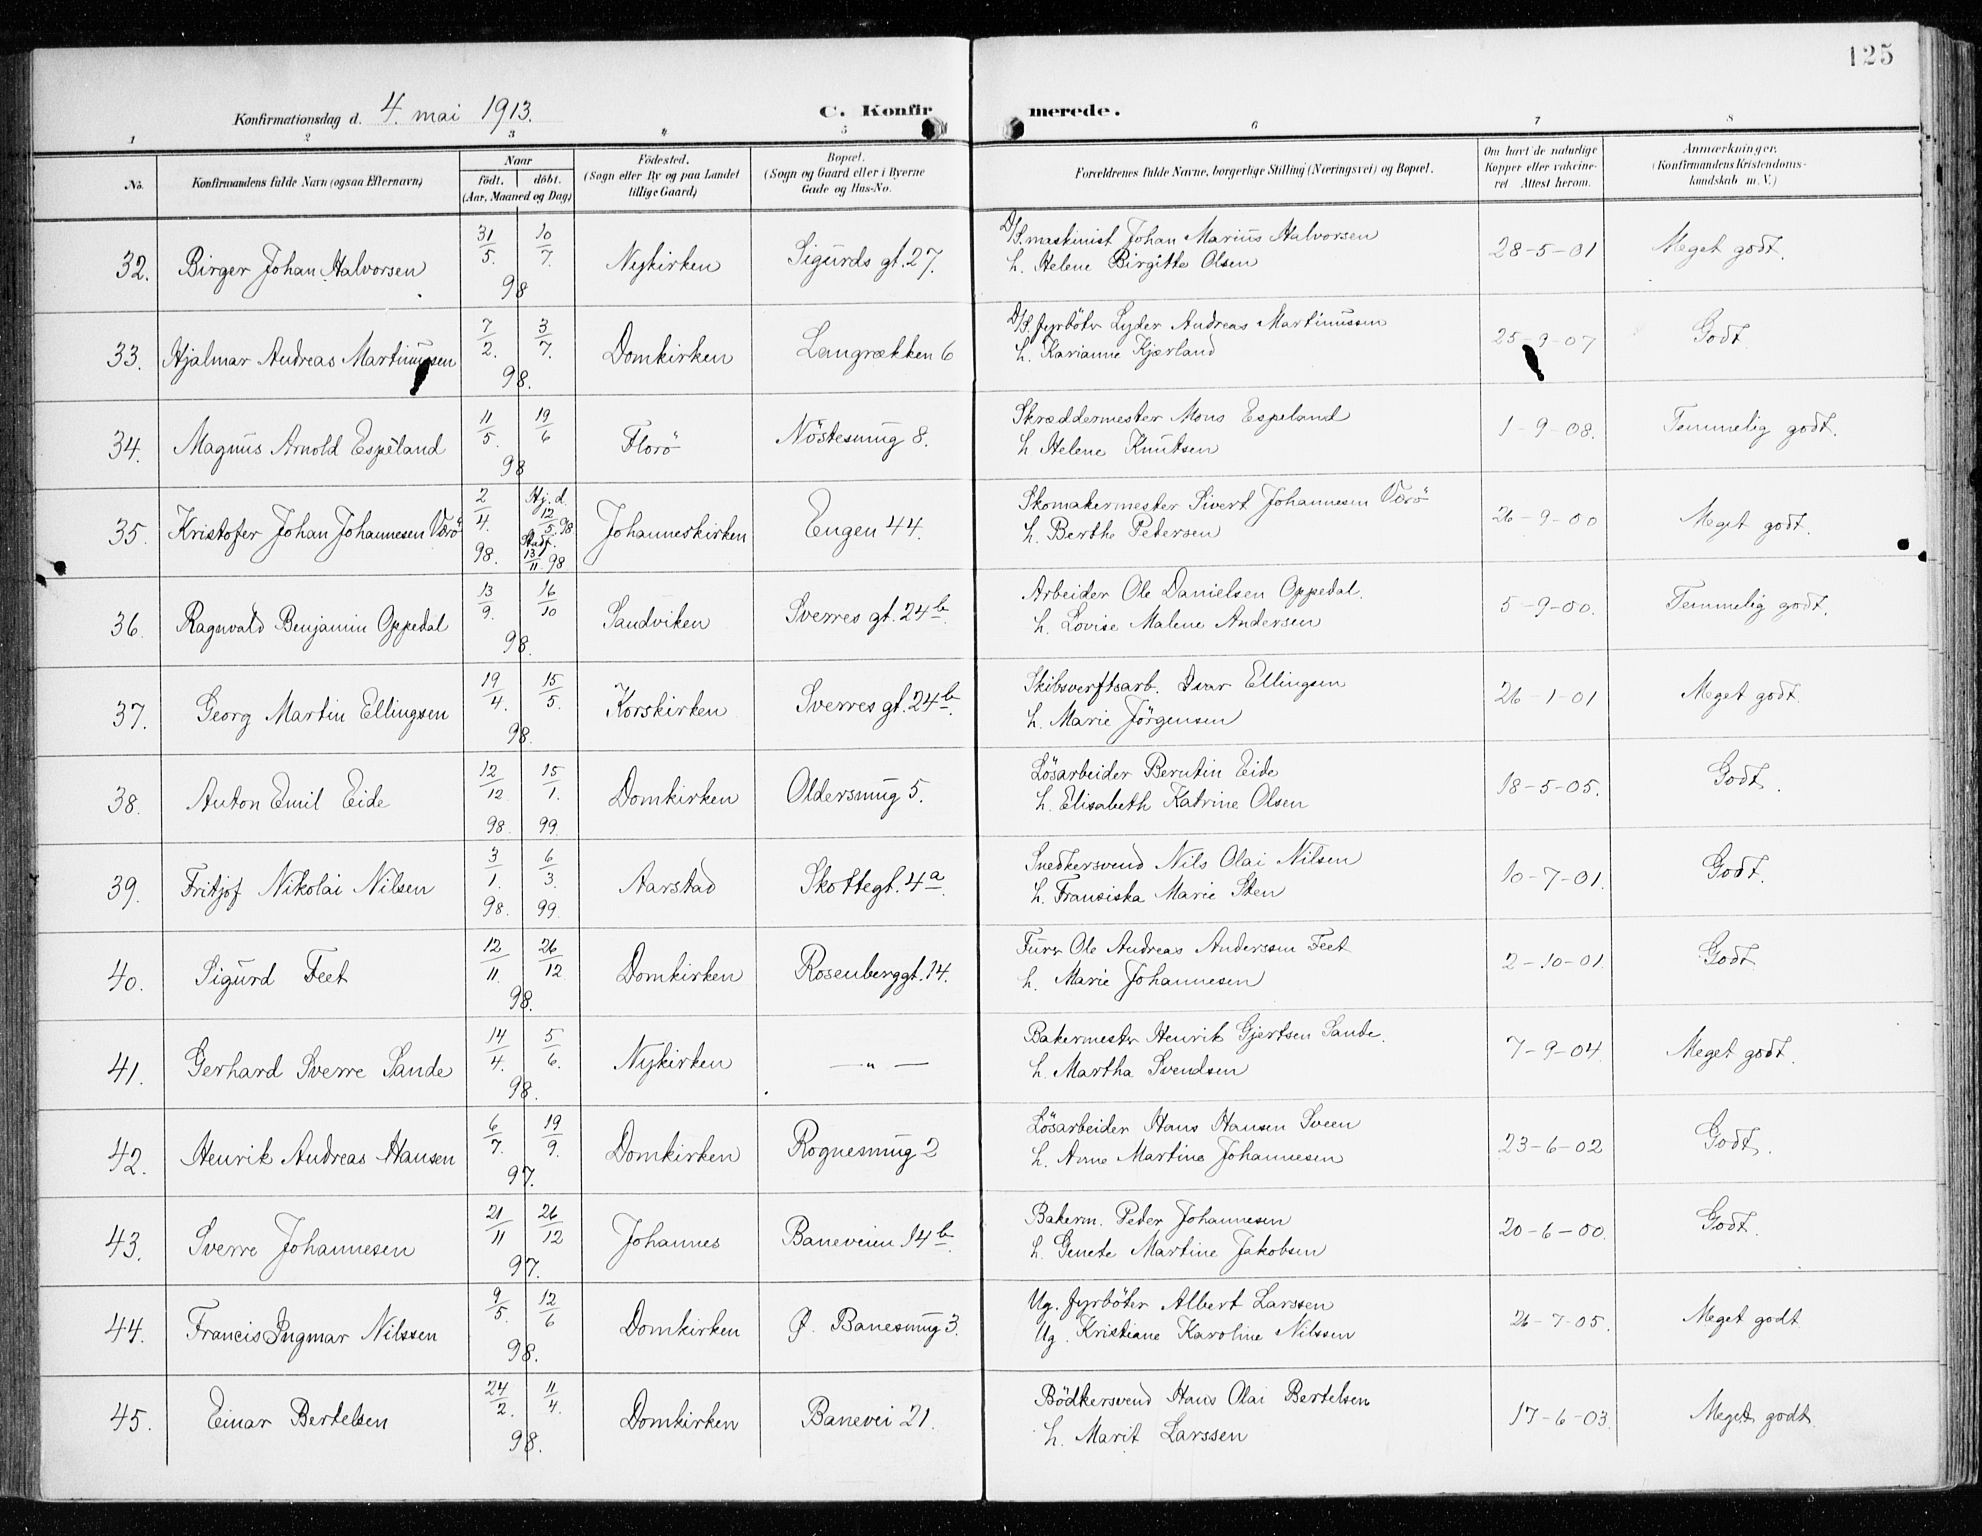 125
Konfirmationsdag d. 4. mai 1913.
C. Konfirmerede.
1 2 3 4 5 6 7 8
No.
Konfirmandens fulde Navn (ogsaa Efternavn)
Naar
födt. döbt.
(Aar, Maaned og Dag)
Födested.
(Sogn eller By og paa Landet
tillige Gaard)
Bopæl.
(Sogn og Gaard eller i Byerne
Gade og Hus-No.
Forældrenes fulde Navne, borgerlige Stilling (Næringsvei) og Bopæl.
Om havt de naturlige
Kopper eller vakcine-
ret Attest herom.
Anmærkninger.
(Konfirmandens Kristendoms-
kundskab m. V.)
32. Birger Johan Halvorsen 31/5. 10/7. 98 Nykirken Sigurds gt. 27.
D/S. maskinist Johan Marius Halvorsen
h. Helene Birgitte Olsen
28-5-01 Meget godt.
33. Hjalmar Andreas Martinussen 7/2. 3/7. 98. Domkirken Langrækken 6
D/S. fyrböter Lyder Andreas Martinussen
h. Karianne Kjærland
25-9-07 Godt.
34. Magnus Arnold Espeland 11/5. 19/6 98 Florö Nöstesmug 8.
Skræddermester Mons Espeland
h Helene Knutsen
1-9-08. Temmelig godt.
35. Kristofer Johan Johannesen Værö 2/4. 98. Hj. d. 12/5. 98 Stadf. 13/11 98 Johanneskirken Engen 44.
Skomakermester Sivert Johannesen Værö
h. Berthe Petersen
26-9-00 Meget godt.
36. Ragnvald Benjamin Oppedal 13/9. 16/10 98. Sandviken Sverres gt. 24 b.
Arbeider Ole Danielsen Oppedal.
h. Lovise Malene Andersen
5-9-00. Temmelig godt.
37. Georg Martin Ellingsen 19/4. 15/5. 98. Korskirken Sverres gt. 24 b.
Skibsverftsarb. Ivar Ellingsen
h. Marie Jörgensen
26-1-01 Meget godt.
38. Anton Emil Eide 12/12 98. 15/1. 99. Domkirken Oldersmug 5.
Lösarbeider Berntin Eide
h. Elisabeth Katrine Olsen
18-5-05. Godt.
39. Fritjof Nikolai Nilsen 3/1. 98. 6/3. 99. Aarstad Skottegt. 4 a.
Snedkersvend Nils Olai Nilsen
h. Fransiska Marie Sten
10-7-01. Godt.
40. Sigurd Feet 12/11. 26/12 98. Domkirken Rosenberggt. 14.
Furer Ole Andreas Anderssen Feet
h. Marie Johannesen
2-10-01. Godt.
41. Gerhard Sverre Sande 14/4. 5/6. 98. Nykirken — " —
Bakermester Henrik Gjertsen Sande.
h. Martha Svendsen
7-9-04. Meget godt.
42. Henrik Andreas Hansen 6/7. 19/9. 97. Domkirken Rognesmug 2
Lösarbeider Hans Hansen Sveen
h. Anne Martine Johannesen
23-6-02 Godt.
43. Sverre Johannesen 21/11 26/12 97. Johannes Baneveien 14 b.
Bakerm. Peder Johannesen
h. Genete Martine Jakobsen
20-6-00. Godt.
44. Francis Ingmar Nilssen 9/5. 12/6 98. Domkirken Ø. Banesmug 3.
Ug. fyrböter Albert Larssen
Ug. Kristiane Karoline Nilssen
26-7-05. Meget godt
45. Einar Bertelsen 24/2. 11/4. 98. Domkirken Banevei 21.
Bödkersvend Hans Olai Bertelsen
h. Marit Larssen
17-6-03. Meget godt.